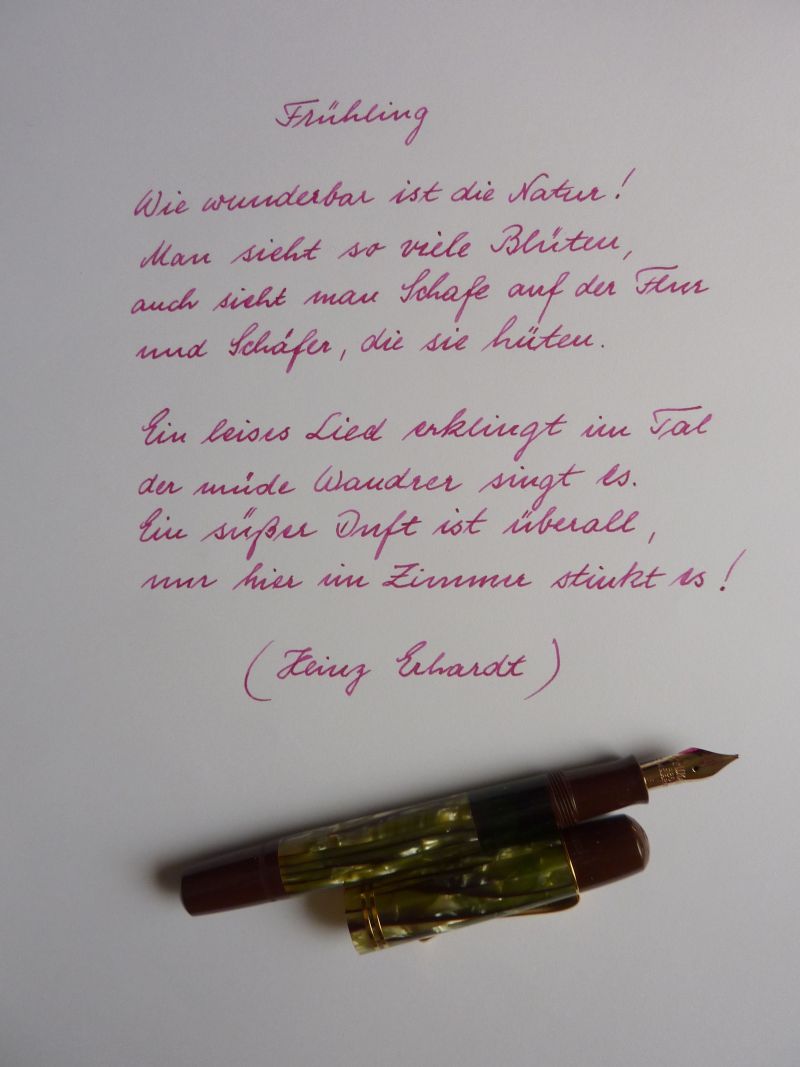 Frühling
Wie wunderbar ist die Natur!
Man sieht so viele Blüten,
auch sieht man Schafe auf der Flur
und Schäfer, die sie hüten.
Ein leises Lied erklingt im Tal
der müde Wandrer singt es.
Ein süßer Duft ist überall,
nur hier im Zimmer stinkt es!
(Heinz Erhardt)